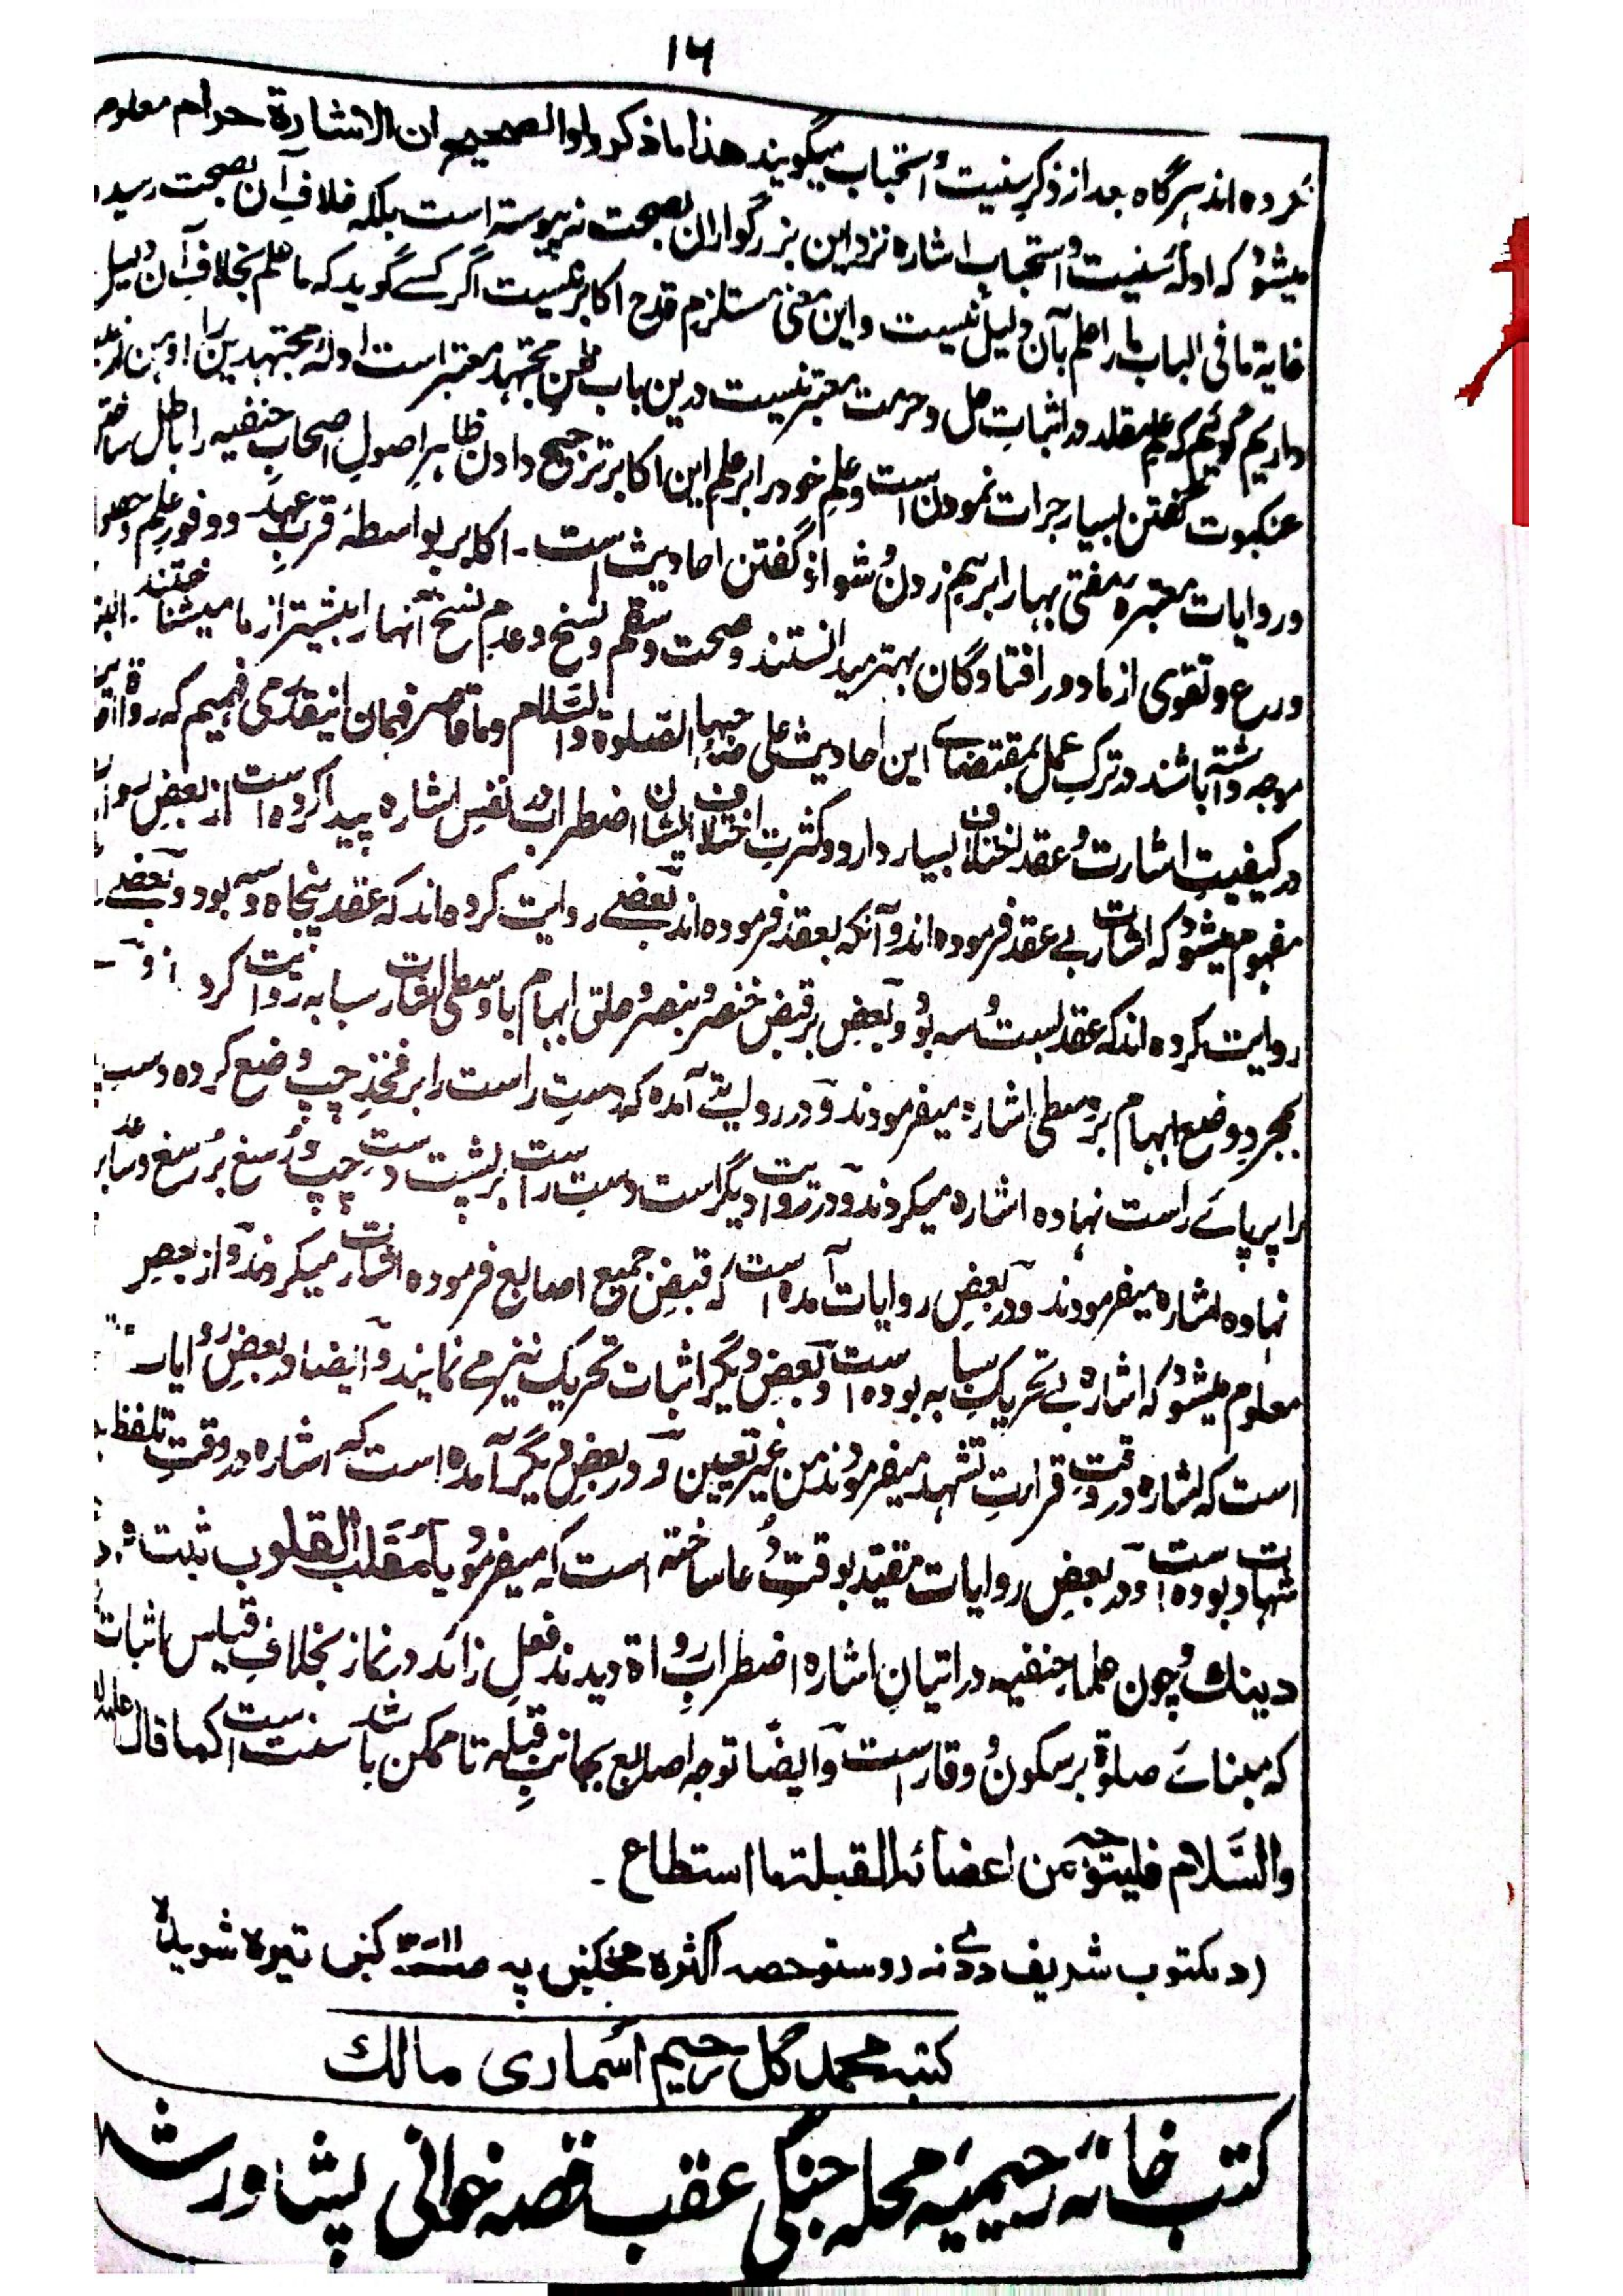 ۱۶
کرده اند هرگاه بعد از ذکر سنیت و استحباب میگویند هذا ما ذکروا والصحیح ان الاشارة حرام معلوم
میشود که ادلهٔ سنیت و استحباب اشاره نزد این بزرگواران بصحت نه پیوسته است بلکه خلافِ آن بصحت رسیده
غایة ما فی الباب ما را علم بآن دلیل نیست و این معنی مستلزم قدح اکابر نیست اگر کسے گوید که ما علم بخلافِ آن دلیل
داریم گوئیم که علم مقلد در اثباتِ حل و حرمت معتبر نیست درین باب ظن مجتهد معتبر است ادلهٔ مجتهدین را اوهن از
عنکبوت گفتن بسیار جرات نمودن است و علمِ خود را بر علم این اکابر ترجیح دادن ظاهرِ اصولِ اصحابِ حنفیه را باطل ساختن
و روایات معتبره مفتی بها را برهم زدن و شواذ گفتن احادیث است ۔ اکابر بواسطهٔ قربِ عهد و وفورِ علم و حصول
ورع و تقوی از ما دور افتادگان بهتر میدانستند و صحت و سقم و نسخ و عدمِ نسخ آنها را بیشتر از ما میشناختند ۔ البته
موجه داشته باشند در ترکِ عمل بمقتضاے این احادیث علی صاحبها الصلوة والسّلام و ما قاصر فهمان اینقدر می فهمیم که رواة
در کیفیتِ اشارت و عقد اختلاف بسیار دارد و کثرتِ اختلافِ ایشان اضطراب در نفسِ اشاره پیدا کرده است از بعض روایات
مفهوم میشود که اشارت بے عقد فرموده اند و آنکه بعقد فرموده اند بعضے روایت کرده اند که عقد پنجاه و سه بود و بعضے
روایت کرده اند که عقد بست و سه بود و بعض بر قبض خنصر و بنصر و حلق ابهام با وسطی اشارت سبابه روایت کرد
بمجردِ وضع ابهام بر وسطی اشاره میفرمودند و در روایتے آمده که دستِ راست را بر فخذِ چپ وضع کرده دستِ
را بر پاے راست نهاده اشاره میکردند و در روایت دیگر است دستِ راست بر پشت دستِ چپ و رسغ بر رسغ و ساعد بر
نهاده اشاره میفرمودند و در بعضِ روایات آمده است که قبضِ جمیع اصابع فرموده اشارت میکردند و از بعض
معلوم میشود که اشاره بے تحریکِ سبابه بوده است و بعض دیگر اثبات تحریک نیز مے نمایند و ایضا در بعض روایات
است که اشاره در وقتِ قراءتِ تشهد میفرمودند من غیر تعیین و در بعض دیگر آمده است که اشاره در وقتِ تلفظ
شهادت بوده است و در بعض روایات مقید بوقتِ دعا ساخته است که میفرمود یا مقلب القلوب ثبت
دینک و چون علماء حنفیه در اتیانِ اشاره اضطرابِ رواة دیدند فعلِ زائد در نماز بخلافِ قیاس اثبات
که مبناے صلوة بر سکون و وقار است و ایضًا توجه اصابع بجانبِ قبله تا ممکن باشد سنت است کما قال علیه
والسَّلام فلیتوجه من اعضائه القبلة ما استطاع ۔
(د مکتوب شریف د دے نه روستو حصه اکثره مخکښ په ۱۱ـ۳ کښ تیره شویده
کتبه محمد گل رحیم اسماری مالك
کتب خانه رحیمیه محله جنگی عقب قصه خوانی پشاور